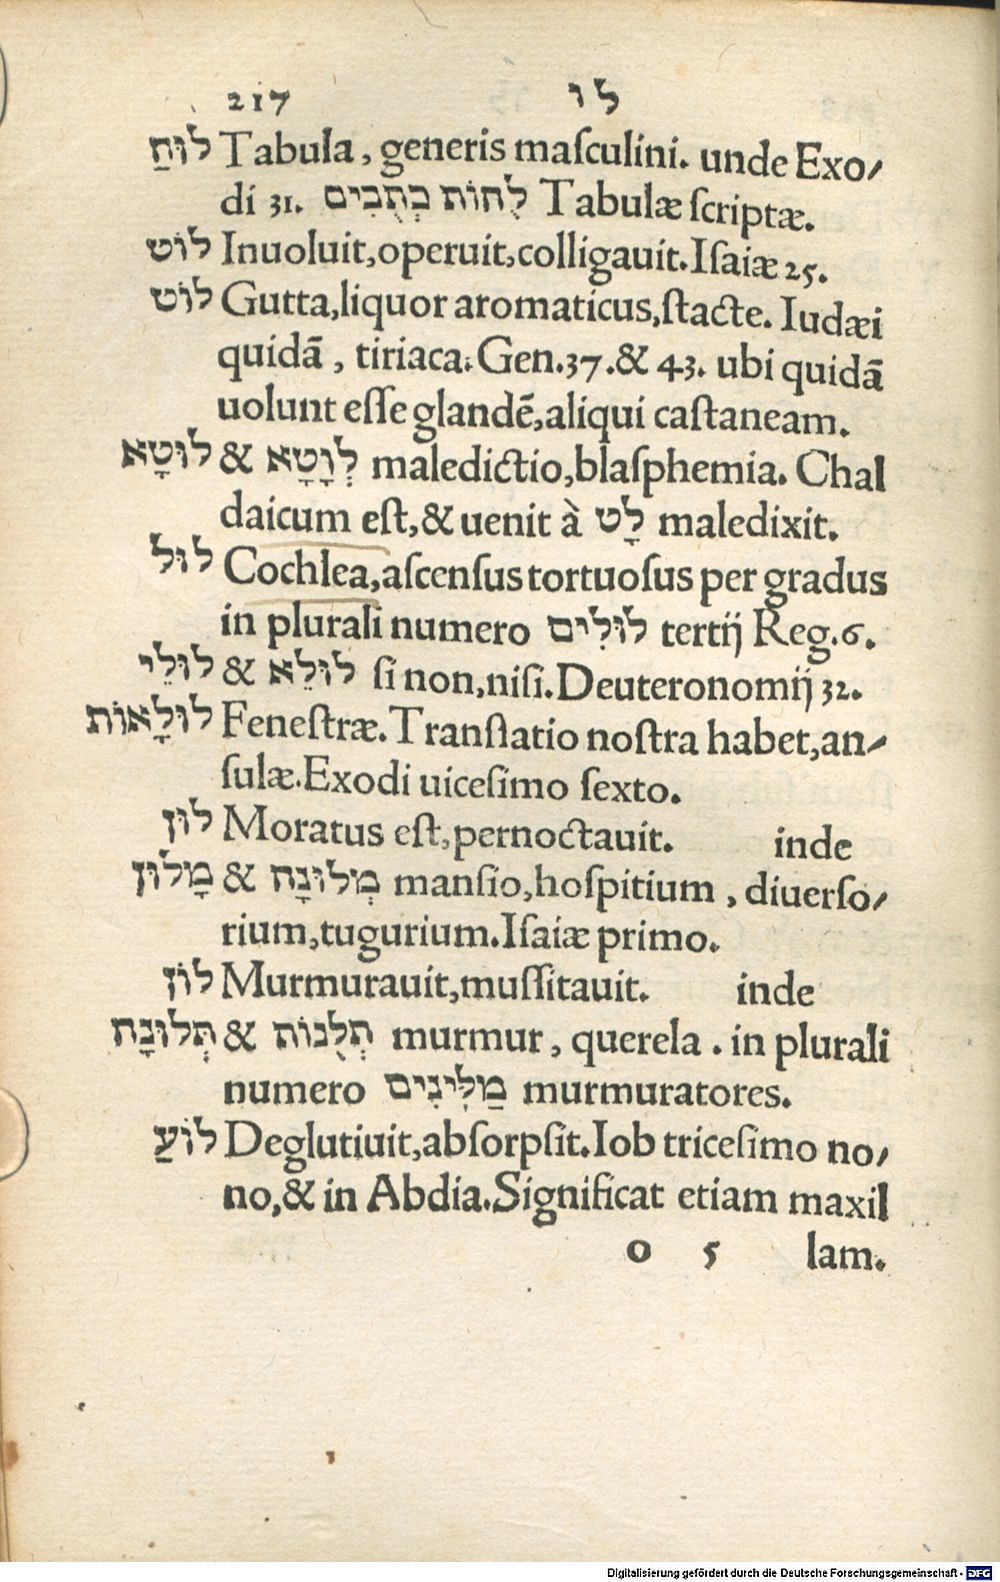 217 לו
לוּחַ Tabula, generis masculini. unde Exo/
di 31. לֻחוֹת כְּתֻבִים Tabulæ scriptæ.
לוֹט Inuoluit, operuit, colligauit. Isaiæ 25.
לוֹט Gutta, liquor aromaticus, stacte. Iudæi
quidā, tiriaca. Gen. 37. & 43. ubi quidā
uolunt esse glandē, aliqui castaneam.
לוּטָא & לְוָטָא maledictio, blasphemia. Chal
daicum est, & uenit à לָט maledixit.
לוּל Cochlea, ascensus tortuosus per gradus
in plurali numero לוּלִים tertij Reg. 6.
לוּלֵי & לוּלֵא si non, nisi. Deuteronomij 32.
לוּלָאוֹת Fenestræ. Translatio nostra habet, an/
sulæ. Exodi uicesimo sexto.
לוּן Moratus est, pernoctauit. inde
מָלוֹן & מְלוּנָה mansio, hospitium, diuerso/
rium, tugurium. Isaiæ primo.
לוֹן Murmurauit, mussitauit. inde
תְּלוּנָה & תְלֻנוֹת murmur, querela. in plurali
numero מַלִּינִים murmuratores.
לוֹעַ Deglutiuit, absorpsit. Iob tricesimo no/
no, & in Abdia. Significat etiam maxil
o 5 lam.
Digitalisierung gefördert durch die Deutsche Forschungsgemeinschaft - DFG